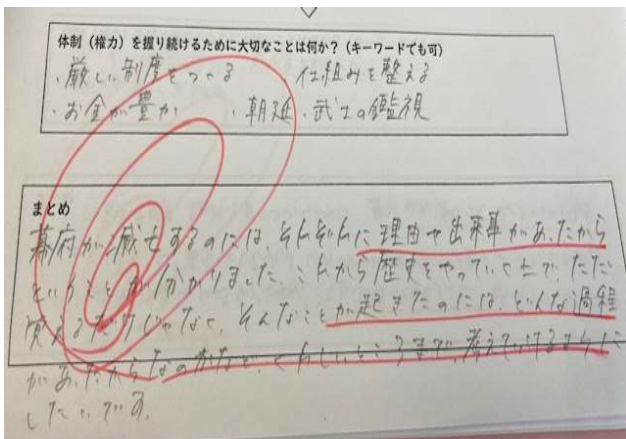 体制（権力）を握り続けるために大切なことは何か？（キーワードでも可）
・厳しい制度をつくる　仕組みを整える
・お金が豊か　・朝廷・武士の鑑視
まとめ
幕府が滅亡するのには、それぞれに理由や出来事があったから
ということが分かりました。これから歴史をやっていく上で、ただ
覚えるだけじゃなく、そんなことが起きたのには、どんな過程
があったからなのかなど、くわしいところまで、考えていけるように
したいです。